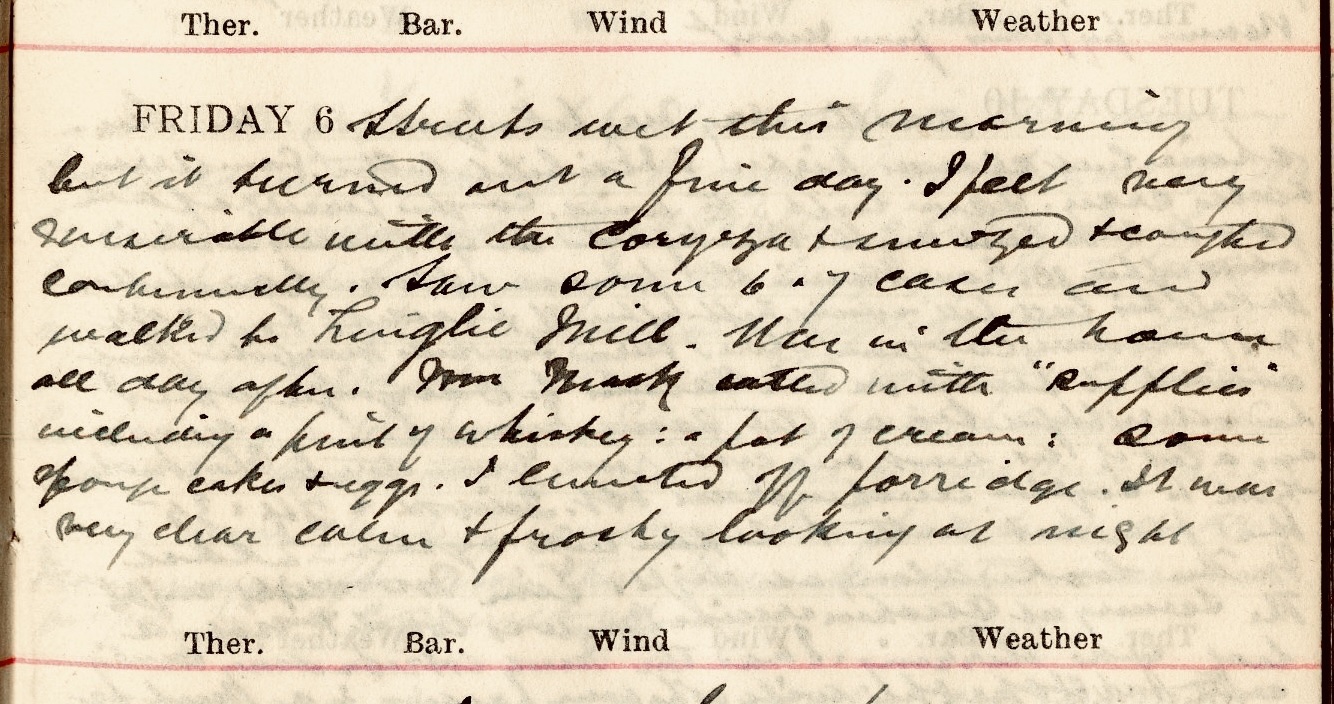 Ther. Bar. Wind Weather
FRIDAY 6 Streets wet this morning
but it turned out a fine day. I felt very
miserable with the coryza & sneezed & coughed
continually. Saw some 6 or 7 cases and
walked to Linglie Mill. Was in the house
all day after. Mrs called with "supplies"
including a pint of whiskey: a pot of cream: some
sponge cakes & eggs. I lunched off porridge. It was
very clear calm & frosty looking at night
Ther. Bar. Wind Weather